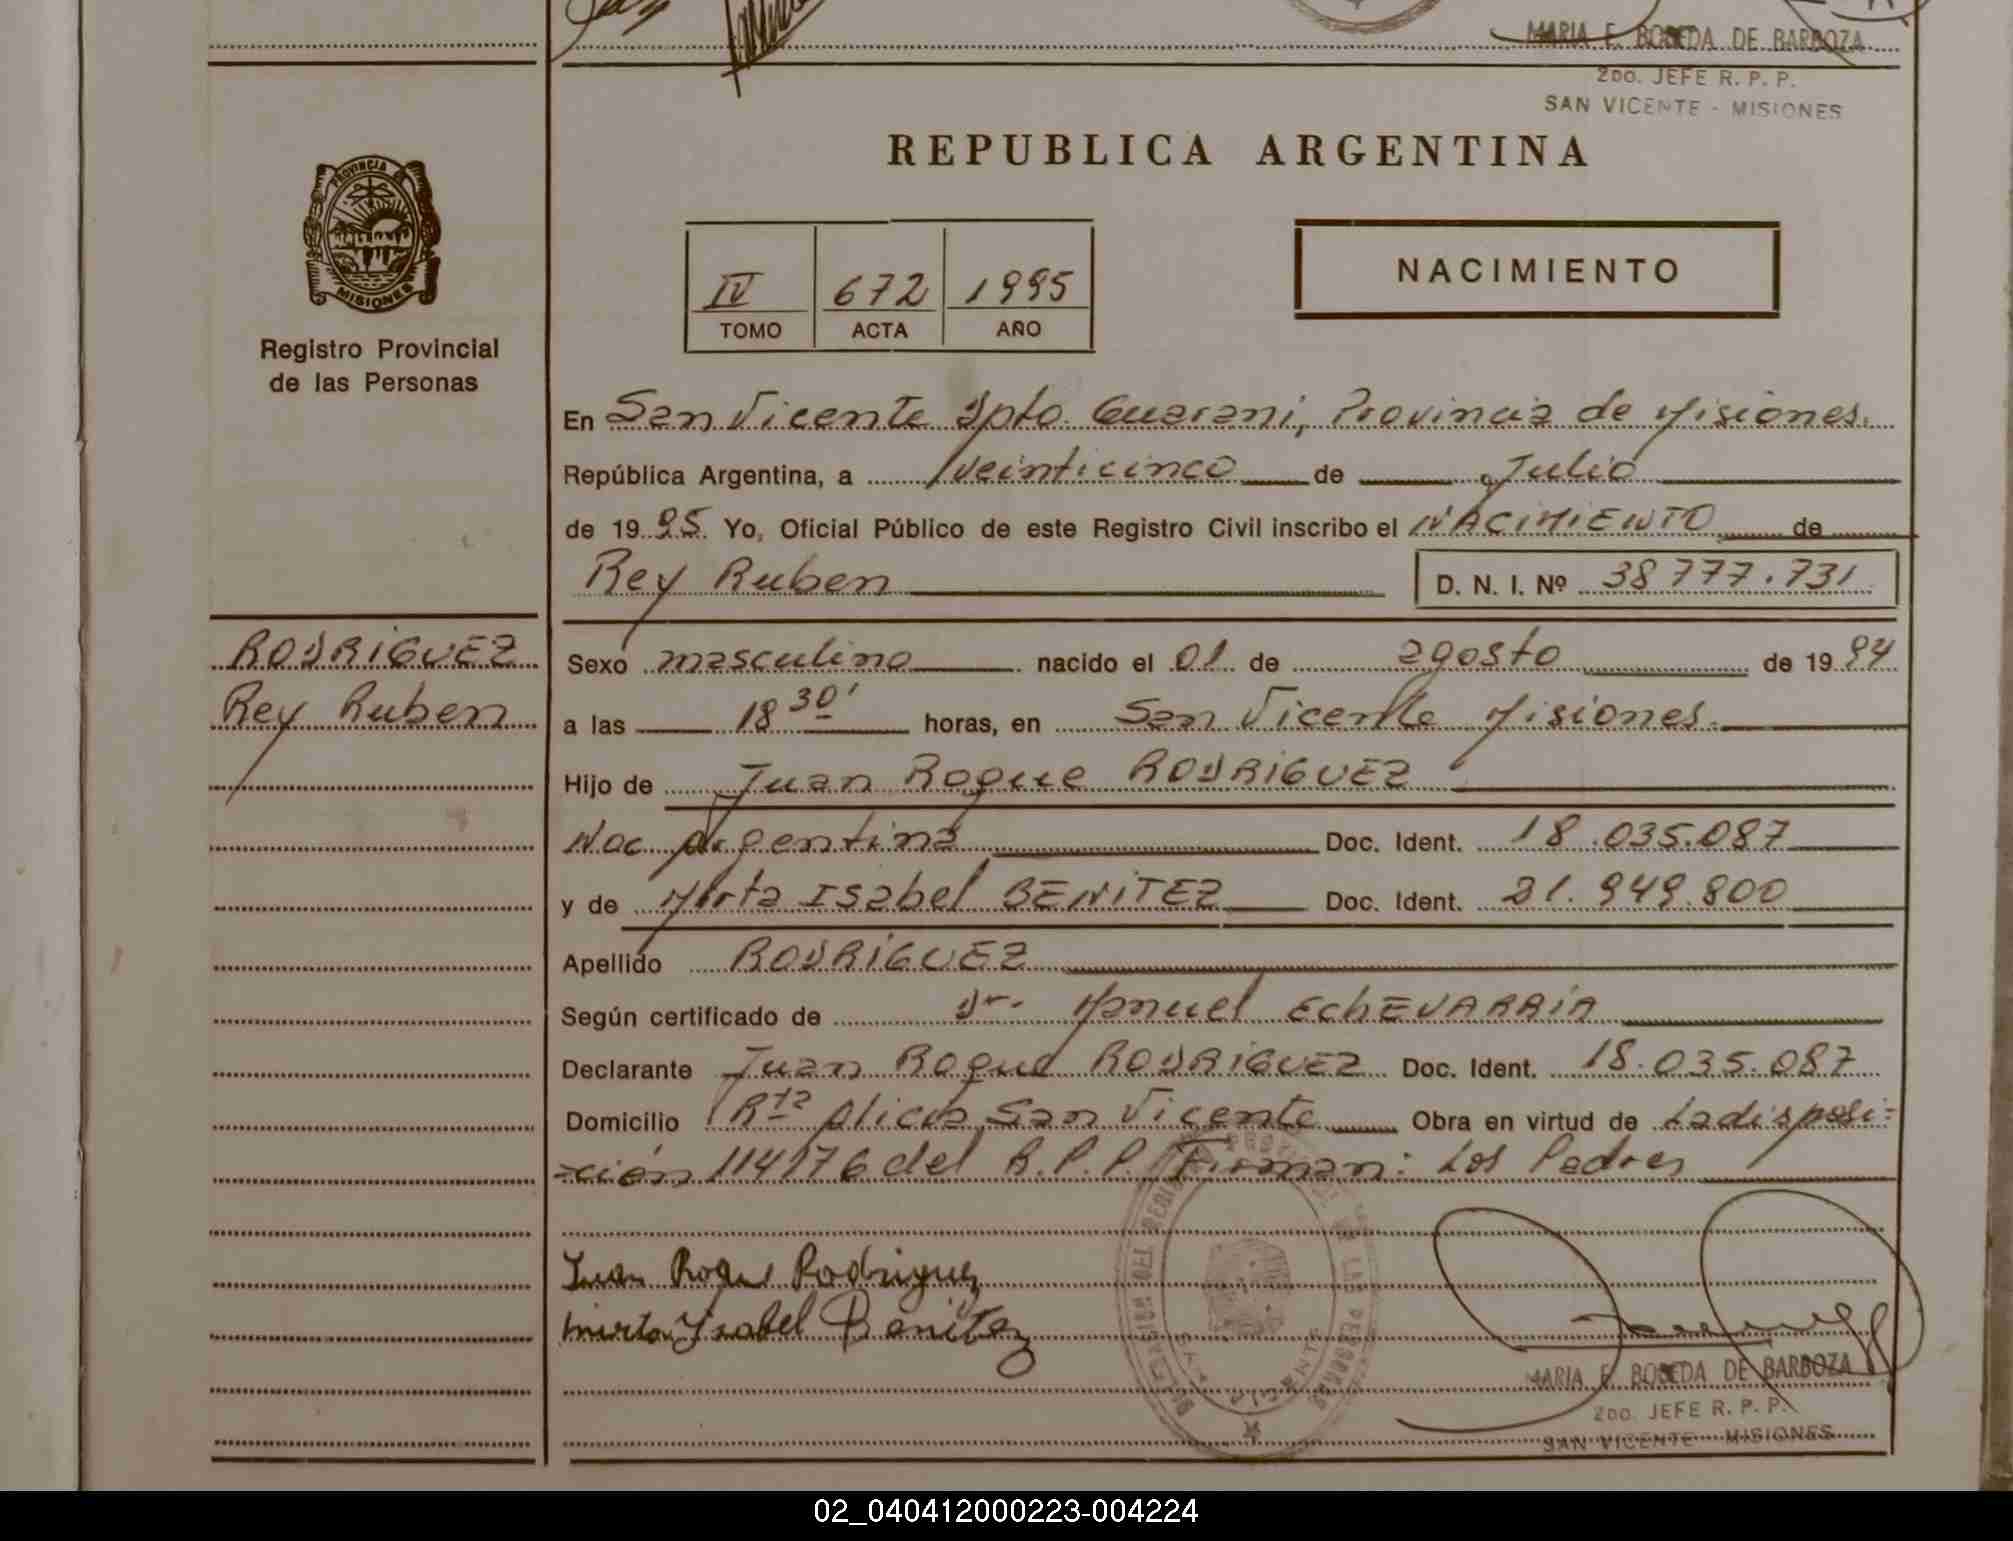 MARIA E. BOBEDA DE BARBOZA
2DO. JEFE R. P. P.
SAN VICENTE - MISIONES
REPUBLICA ARGENTINA
PROVINCIA
MISIONES
Registro Provincial
de las Personas
IV 672 1995
TOMO ACTA AÑO
NACIMIENTO
En San Vicente Dpto. Guarani, Provincia de Misiones.
República Argentina, a veinticinco de Julio
de 1995 Yo, Oficial Público de este Registro Civil inscribo el NACIMIENTO de
Rey Ruben D. N. I. Nº 38777.731
RODRIGUEZ
Rey Ruben
Sexo masculino nacido el 01 de agosto de 1994
a las 18 30' horas, en San Vicente Misiones.
Hijo de Juan Roque RODRIGUEZ
Nac Argentina Doc. Ident. 18.035.087
y de Mirta Isabel BENITEZ Doc. Ident. 21.949.800
Apellido RODRIGUEZ
Según certificado de Dr. Manuel EchEVARRIA
Declarante Juan Roque RODRIGUEZ Doc. Ident. 18.035.087
Domicilio Rta Alicia San Vicente Obra en virtud de La disposi=
=ción 114176 del R.P.P. Firman: Los Padres
Juan Roque Rodriguez
mirta Ysabel Benitez
DELEGACION DEL REGISTRO PROVINCIAL DE LAS PERSONAS
SAN VICENTE
MARIA E. BOBEDA DE BARBOZA
2DO. JEFE R. P. P.
SAN VICENTE - MISIONES
02_040412000223-004224